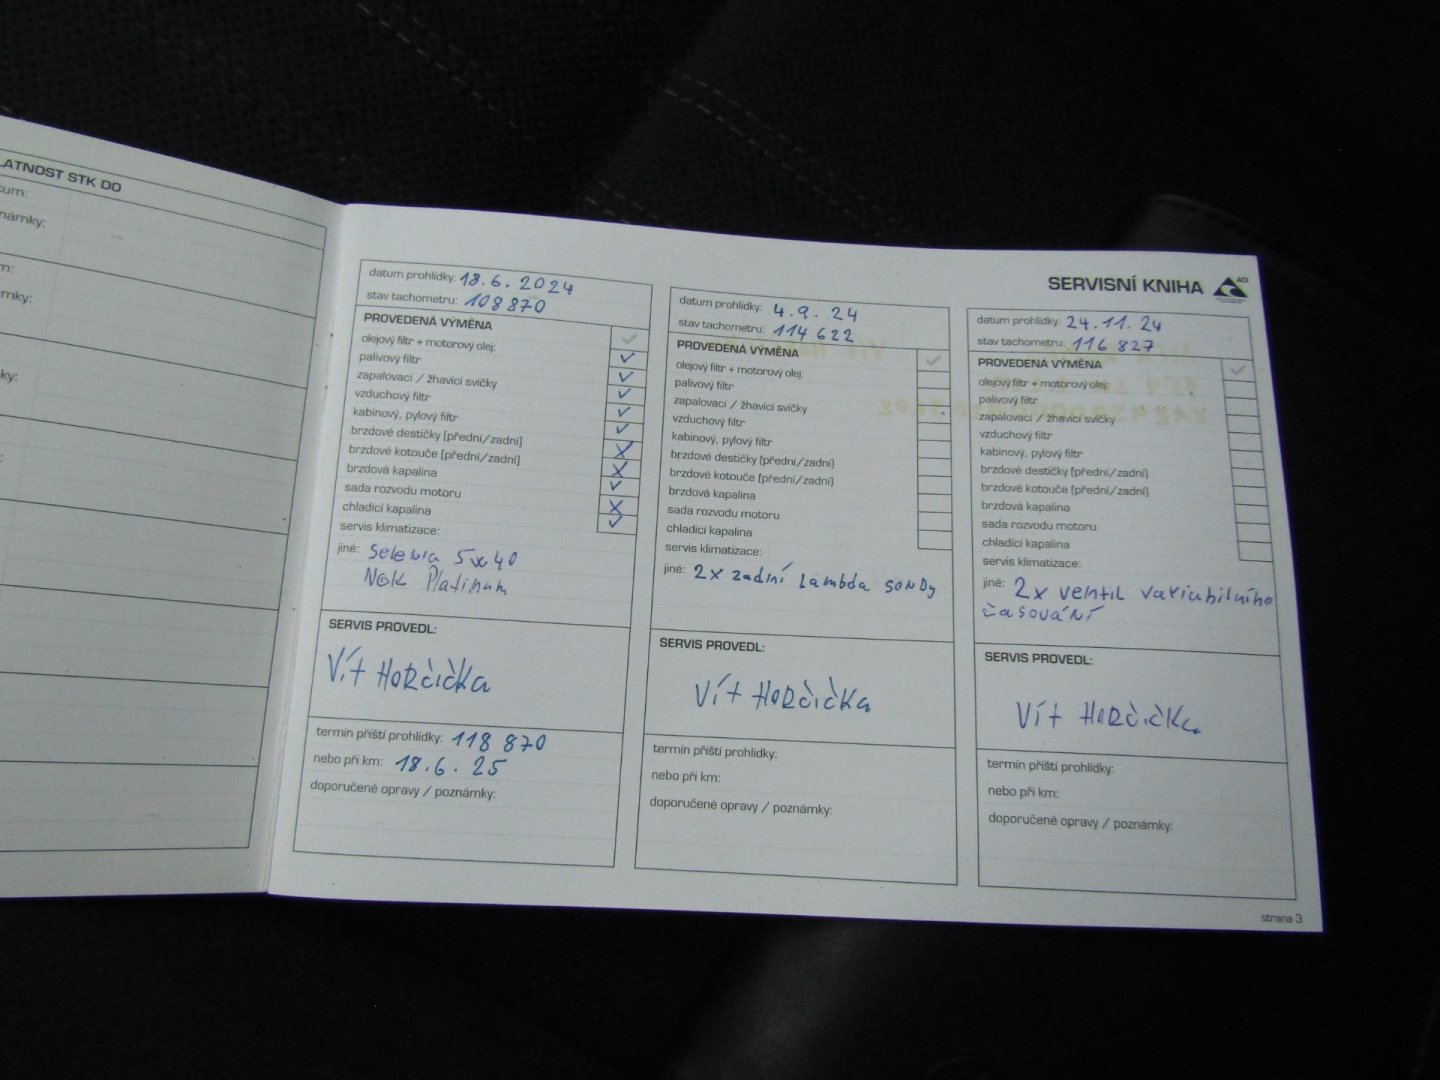 LATNOST STK DO
tum:
námky:
m:
mky:
ky:
SERVISNÍ KNIHA
datum prohlídky: 18.6.2024
stav tachometru: 108 870
PROVEDENÁ VÝMĚNA
olejový filtr + motorový olej:
palivový filtr
zapalovací / žhavící svíčky
vzduchový filtr
kabinový, pylový filtr
brzdové destičky [přední/zadní]
brzdové kotouče [přední/zadní]
brzdová kapalina
sada rozvodu motoru
chladící kapalina
servis klimatizace:
jiné: Selenia 5w40
NGK Platinum
SERVIS PROVEDL:
Vít Horčička
termín příští prohlídky: 118 870
nebo při km: 18.6.25
doporučené opravy / poznámky:
datum prohlídky: 4.9.24
stav tachometru: 114 622
PROVEDENÁ VÝMĚNA
olejový filtr + motorový olej:
palivový filtr
zapalovací / žhavící svíčky
vzduchový filtr
kabinový, pylový filtr
brzdové destičky [přední/zadní]
brzdové kotouče [přední/zadní]
brzdová kapalina
sada rozvodu motoru
chladící kapalina
servis klimatizace:
jiné: 2x zadní Lambda sondy
SERVIS PROVEDL:
Vít Horčička
termín příští prohlídky:
nebo při km:
doporučené opravy / poznámky:
datum prohlídky: 24.11.24
stav tachometru: 116 827
PROVEDENÁ VÝMĚNA
olejový filtr + motorový olej:
palivový filtr
zapalovací / žhavící svíčky
vzduchový filtr
kabinový, pylový filtr
brzdové destičky [přední/zadní]
brzdové kotouče [přední/zadní]
brzdová kapalina
sada rozvodu motoru
chladící kapalina
servis klimatizace:
jiné: 2x ventil variabilního
časování
SERVIS PROVEDL:
Vít Horčička
termín příští prohlídky:
nebo při km:
doporučené opravy / poznámky:
strana 3